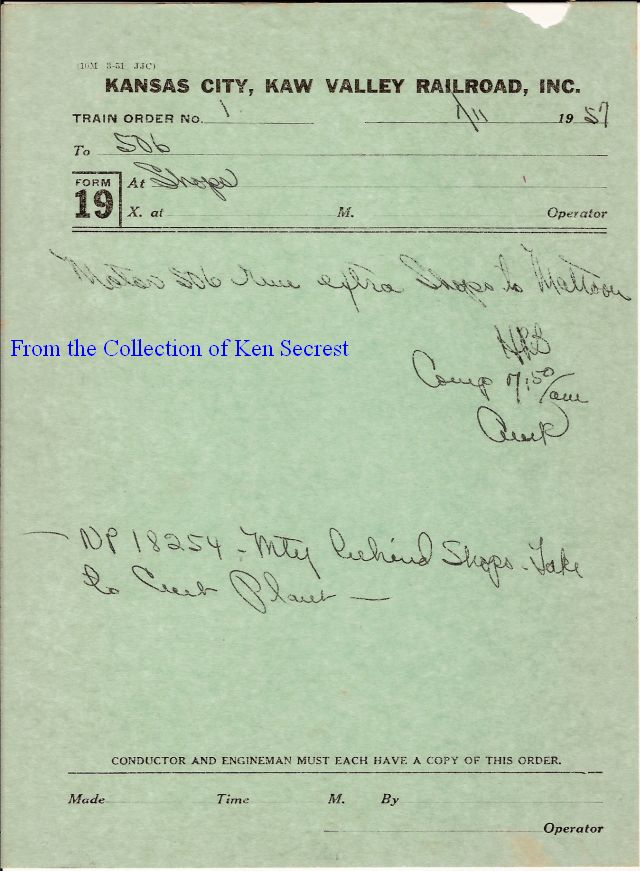 (10M 3-51 JJC)
KANSAS CITY, KAW VALLEY RAILROAD, INC.
TRAIN ORDER No. 1 7/11 1957
To 506
FORM 19
At Shops
X. at M. Operator
Motor 506 run extra Shops to Mattoon
From the Collection of Ken Secrest
Comp 7:50/am
NP 18254 - Mty behind Shops - Take
to Cmt Plant
CONDUCTOR AND ENGINEMAN MUST EACH HAVE A COPY OF THIS ORDER.
Made Time M. By
Operator